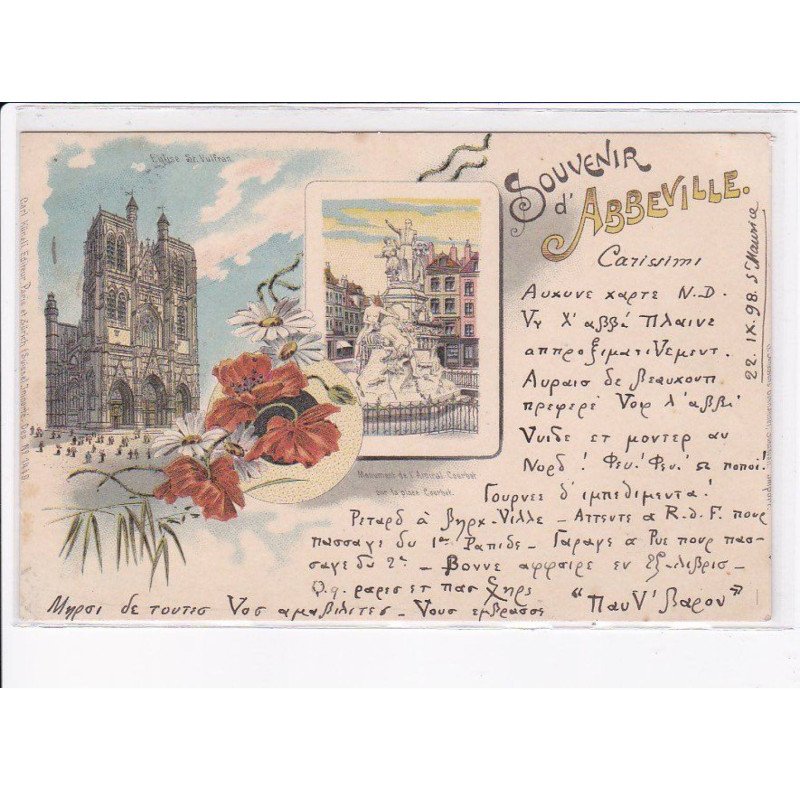 Eglise St. Vulfran
SOUVENIR
d'ABBEVILLE.
Monument de l'Amiral Courbet
sur la place Courbet.
22. IX. 98. St Maurice
Carissimi
Αυχυνε χαρτε N.D.
Vυ λ'αββέ Πλαινε
αππροξιματιVεμεντ.
Αυραισ δε βεαυχουπ
πρεφερέ Vοιρ λ'αββέ
Vυιδε ετ μοντερ αυ
Νορδ! Φευ! Φευ! Ω ποποι!
Γουργες δ'ιμπεδιμεντα!
Ρεταρδ à Βηρχ-Vιλλε - Αττεντε à R.d.F. πουρ
πασσαγε δυ 1er Ραπιδε - Γαραγε à Ρυε πουρ πασ-
σαγε δυ 2e - Βοννε αφφαιρε εν Εξ-λιβρισ -
Q.q. ραρες ετ πασ Χηρς
Μηρσι δε τουτεσ Vοσ αμαβιλιτεσ - Vους εμβρασσε "ΠαυV' Βαρον"